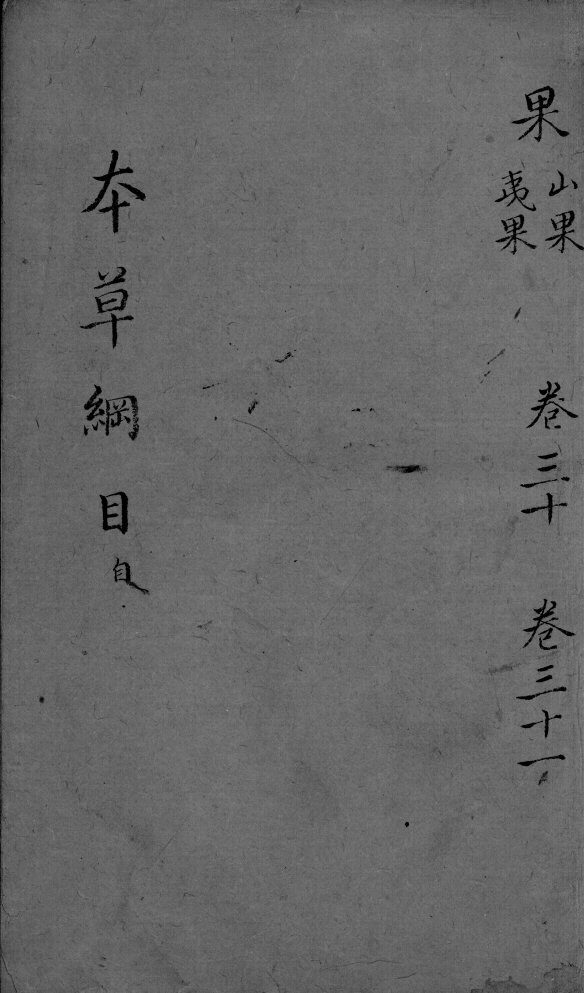 果
山果
夷果
卷三十
卷三十一
本草綱目